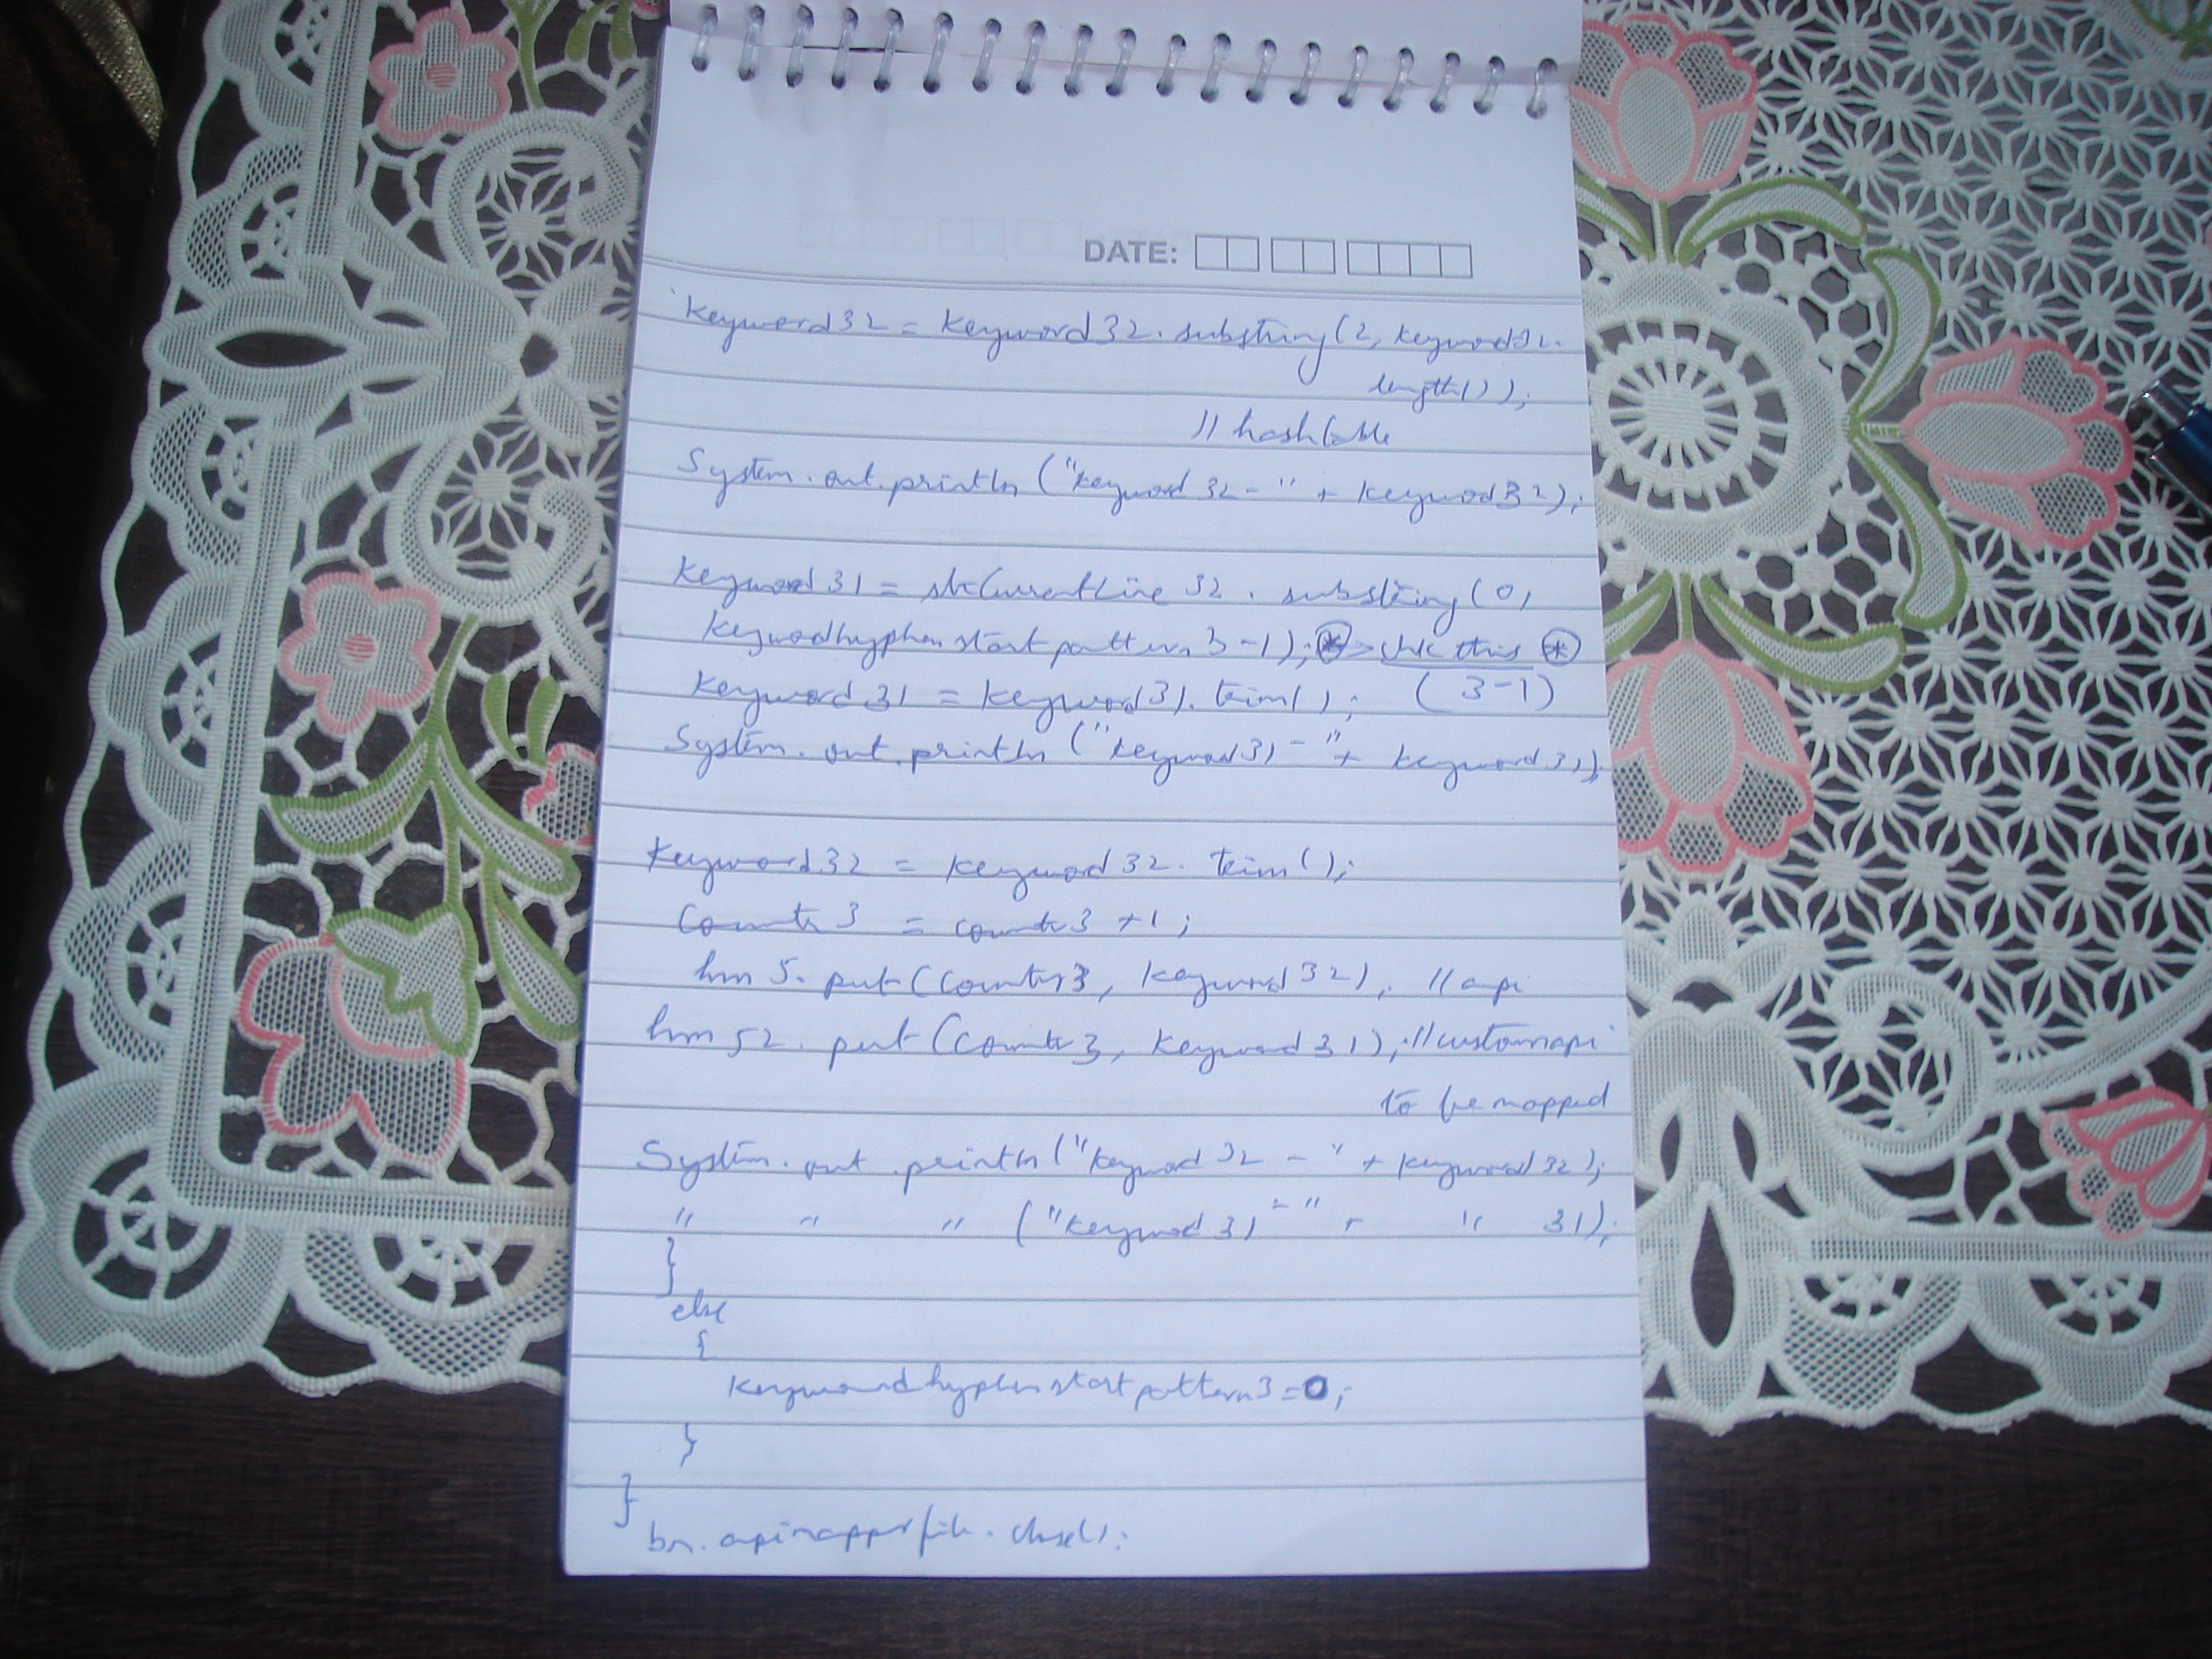 DATE:
keyword32 = keyword32.substring(2, keyword32.
length());
// hashtable
System.out.println("keyword32-" + keyword32);
keyword31 = strCurrentLine32.substring(0,
keywordhyphenstartpattern3-1); * > chk this *
keyword31 = keyword31.trim(); (3-1)
System.out.println("keyword31-" + keyword31);
keyword32 = keyword32.trim();
counter3 = counter3 +1;
hm5.put(counter3, keyword32); // api
hm52.put(counter3, keyword31); //customapi
to be mapped
System.out.println("keyword32-" + keyword32);
" " " ("keyword31-" + " 31);
}
else
{
keywordhyphenstartpattern3=0;
}
}
br.apimapperfile.close();